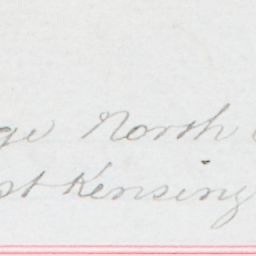 ge North
st Kensing